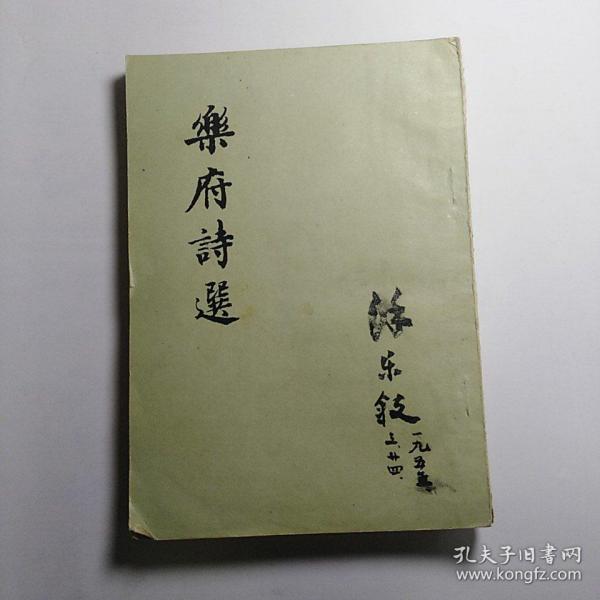 樂府詩選
一九五五年
三.廿四.
孔夫子旧書网
www.kongfz.com